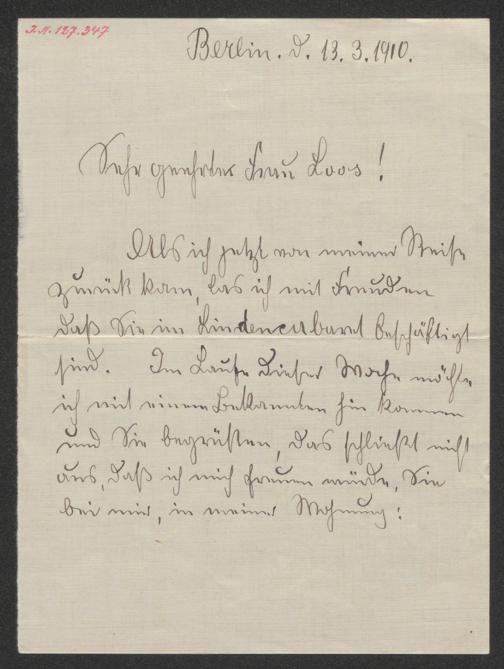 I.N. 127.347
Berlin. d. 13. 3. 1910.
Sehr geehrte Frau Loos!
Als ich jetzt von meiner Reise
zurück kam, las ich mit Freuden
daß Sie im Lindencabaret beschäftigt
sind. Im Laufe dieser Woche möchte
ich mit einem Bekannten hin kommen
und Sie begrüßen, das schließt nicht
aus, daß ich mich freuen würde, Sie
bei mir, in meiner Wohnung: